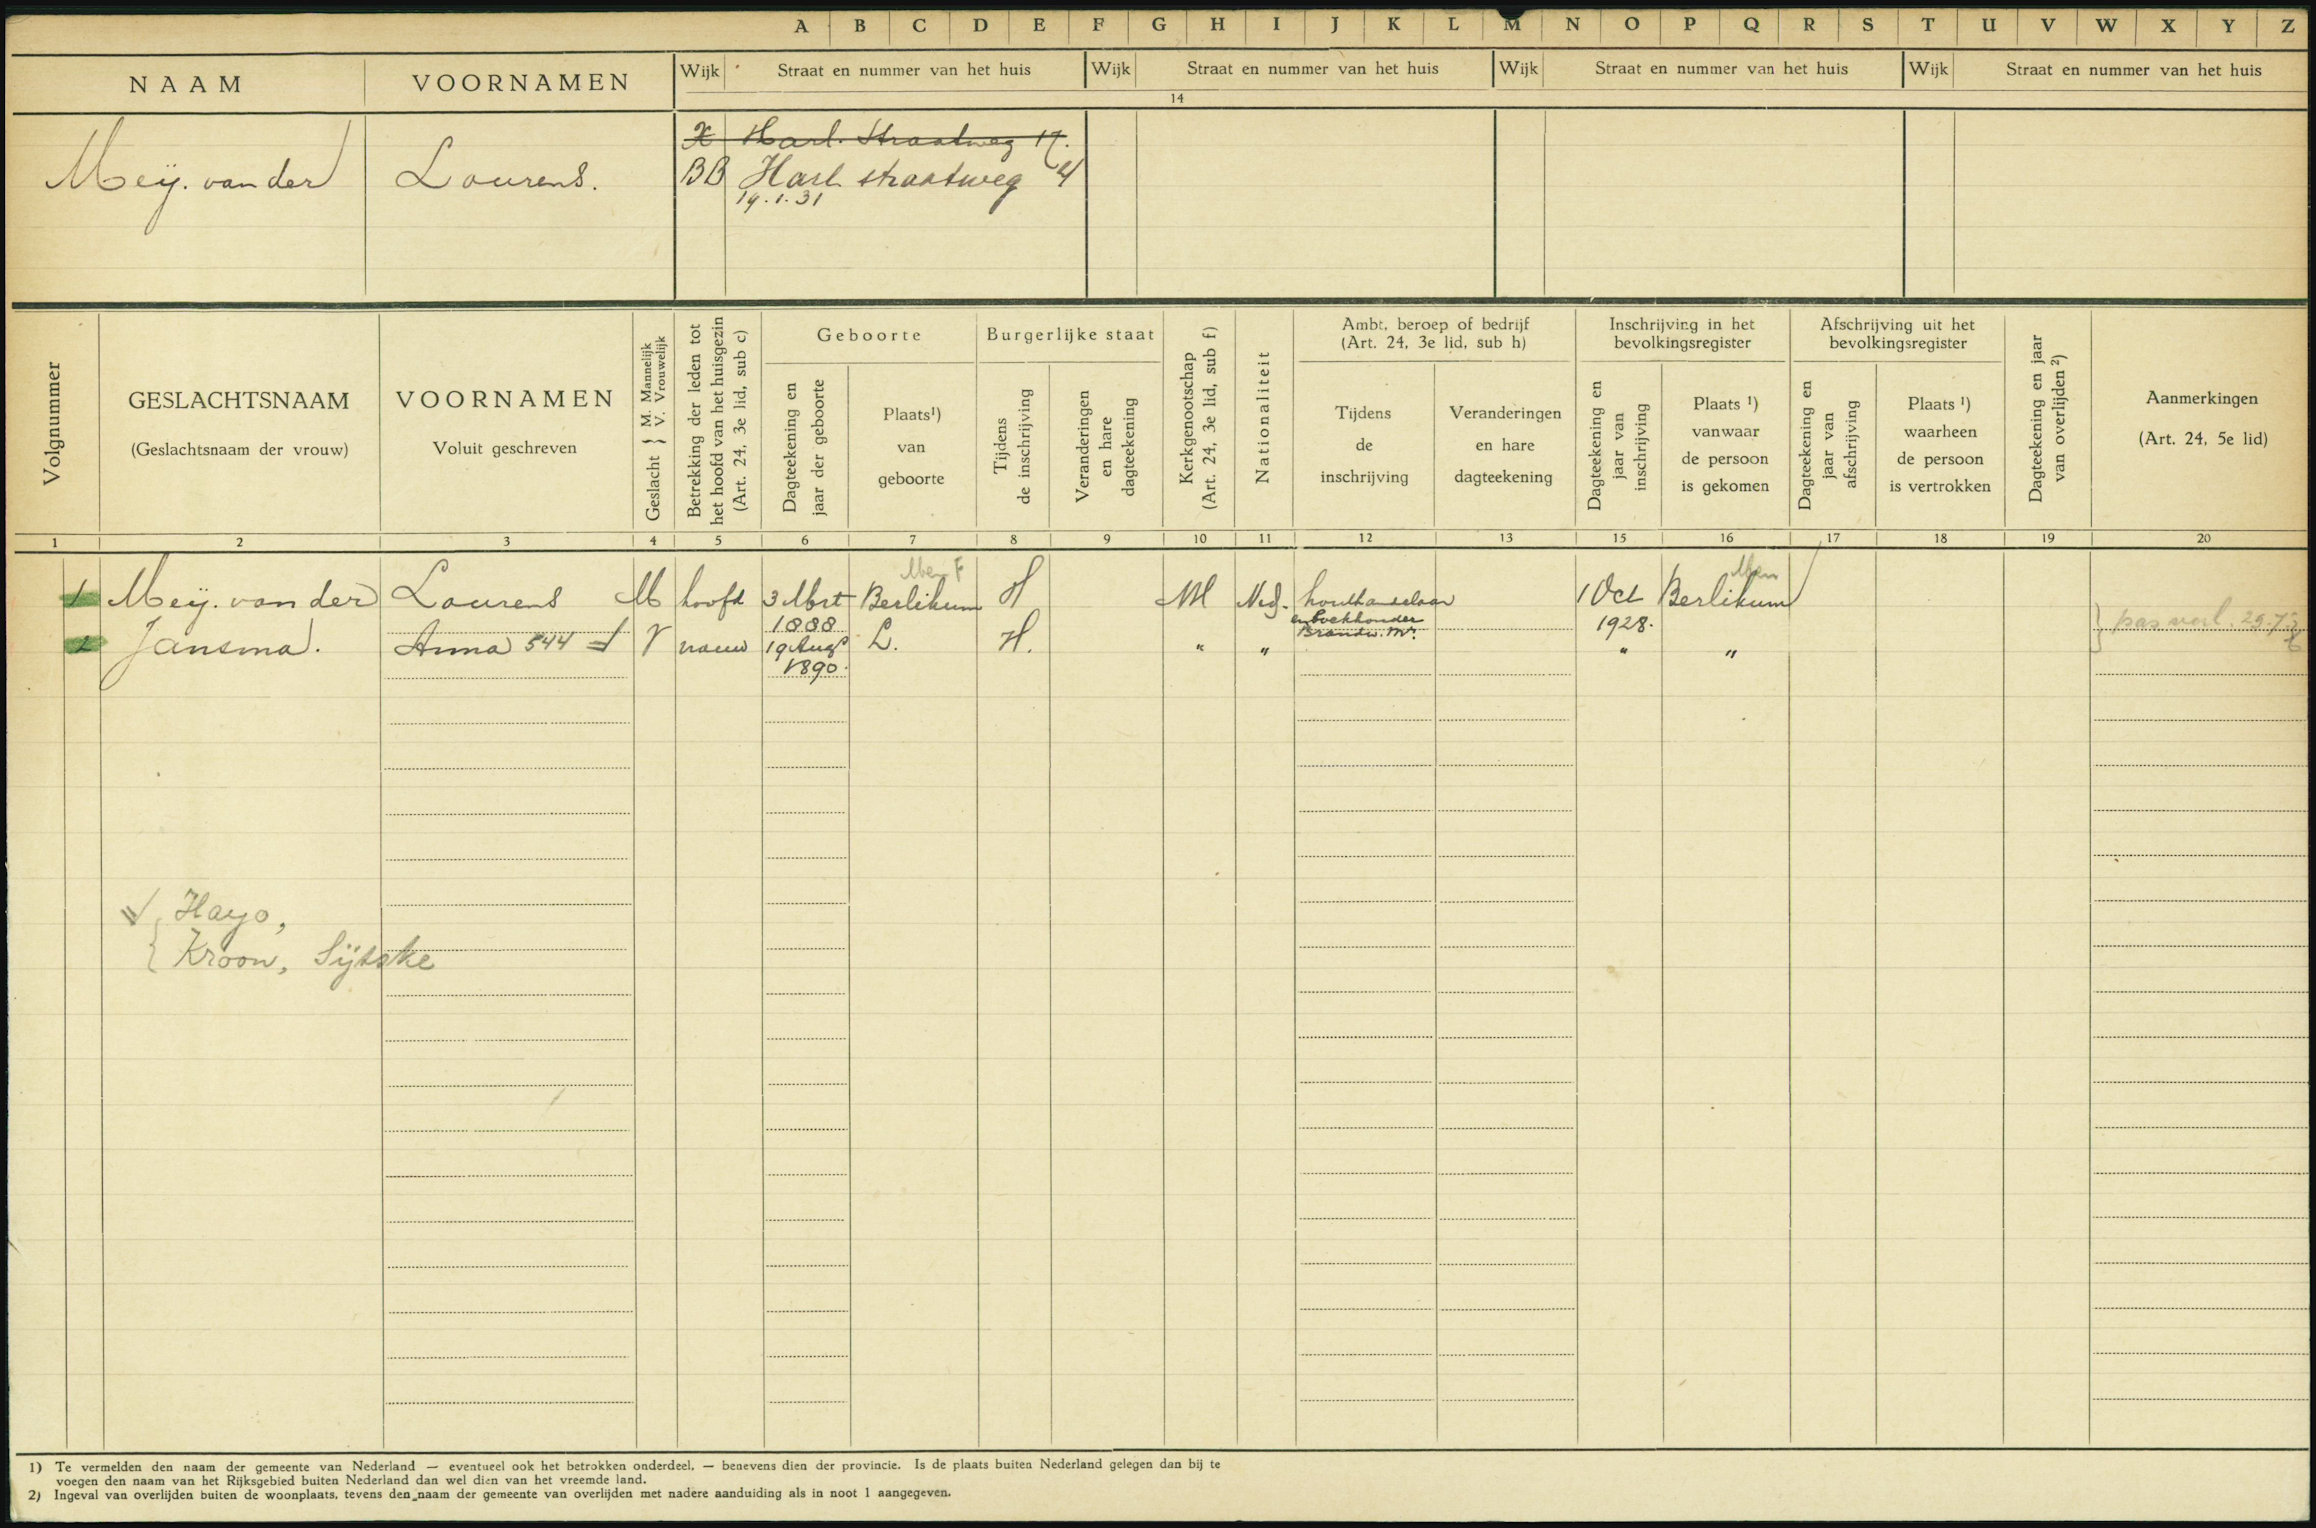 A B C D E F G H I J K L M N O P Q R S T U V W X Y Z
NAAM VOORNAMEN Wijk Straat en nummer van het huis Wijk Straat en nummer van het huis Wijk Straat en nummer van het huis Wijk Straat en nummer van het huis
14
X Harl. Straatweg 17.
Meij. van der Lourens. BB Harl straatweg 4
19.1.31
Volgnummer
GESLACHTSNAAM
(Geslachtsnaam der vrouw)
VOORNAMEN
Voluit geschreven
Geslacht } M. Mannelijk
V. Vrouwelijk
Betrekking der leden tot
het hoofd van het huisgezin
(Art. 24, 3e lid, sub c)
Geboorte
Dagteekening en
jaar der geboorte
Plaats¹)
van
geboorte
Burgerlijke staat
Tijdens
de inschrijving
Veranderingen
en hare
dagteekening
Kerkgenootschap
(Art. 24, 3e lid, sub f)
Nationaliteit
Ambt, beroep of bedrijf
(Art. 24, 3e lid, sub h)
Tijdens
de
inschrijving
Veranderingen
en hare
dagteekening
Inschrijving in het
bevolkingsregister
Dagteekening en
jaar van
inschrijving
Plaats ¹)
vanwaar
de persoon
is gekomen
Afschrijving uit het
bevolkingsregister
Dagteekening en
jaar van
afschrijving
Plaats ¹)
waarheen
de persoon
is vertrokken
Dagteekening en jaar
van overlijden ²)
Aanmerkingen
(Art. 24, 5e lid)
1 2 3 4 5 6 7 8 9 10 11 12 13 15 16 17 18 19 20
Men Men
1 Meij. van der Lourens M hoofd 3 Mrt Berlikum H M Ned. houthandelaar 1 Oct Berlikum
1888 en boekhouder 1928.
Brandw. Mij.
2 Jansma. Anna 544 V vrouw 19 Aug L. H. " " " "
1890.
pas verl. 29.7
Hayo,
Kroon, Sijtske
1) Te vermelden den naam der gemeente van Nederland — eventueel ook het betrokken onderdeel, — benevens dien der provincie. Is de plaats buiten Nederland gelegen dan bij te
voegen den naam van het Rijksgebied buiten Nederland dan wel dien van het vreemde land.
2) Ingeval van overlijden buiten de woonplaats, tevens den naam der gemeente van overlijden met nadere aanduiding als in noot 1 aangegeven.